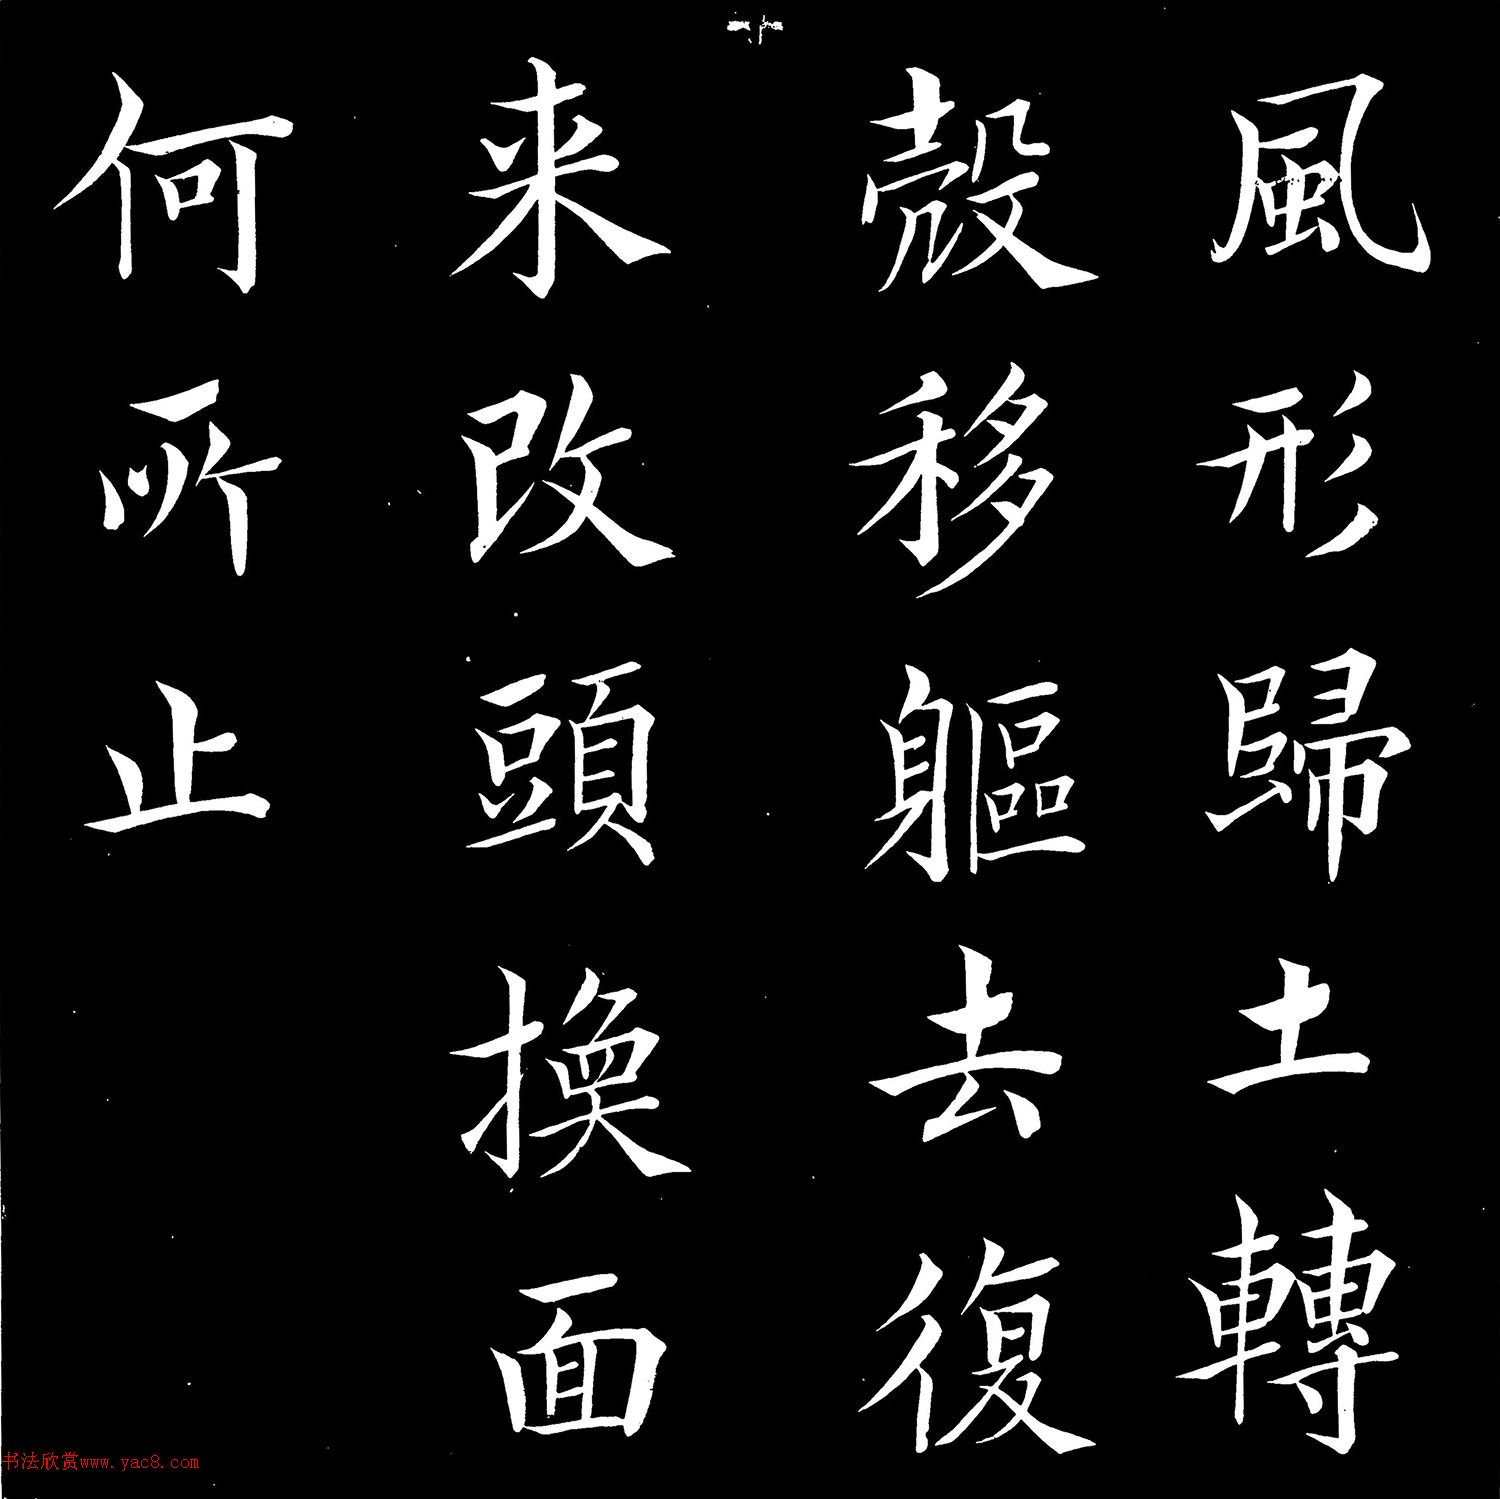 風形歸土轉
殼移軀去復
来改頭換面
何所止
书法欣赏www.yac8.com